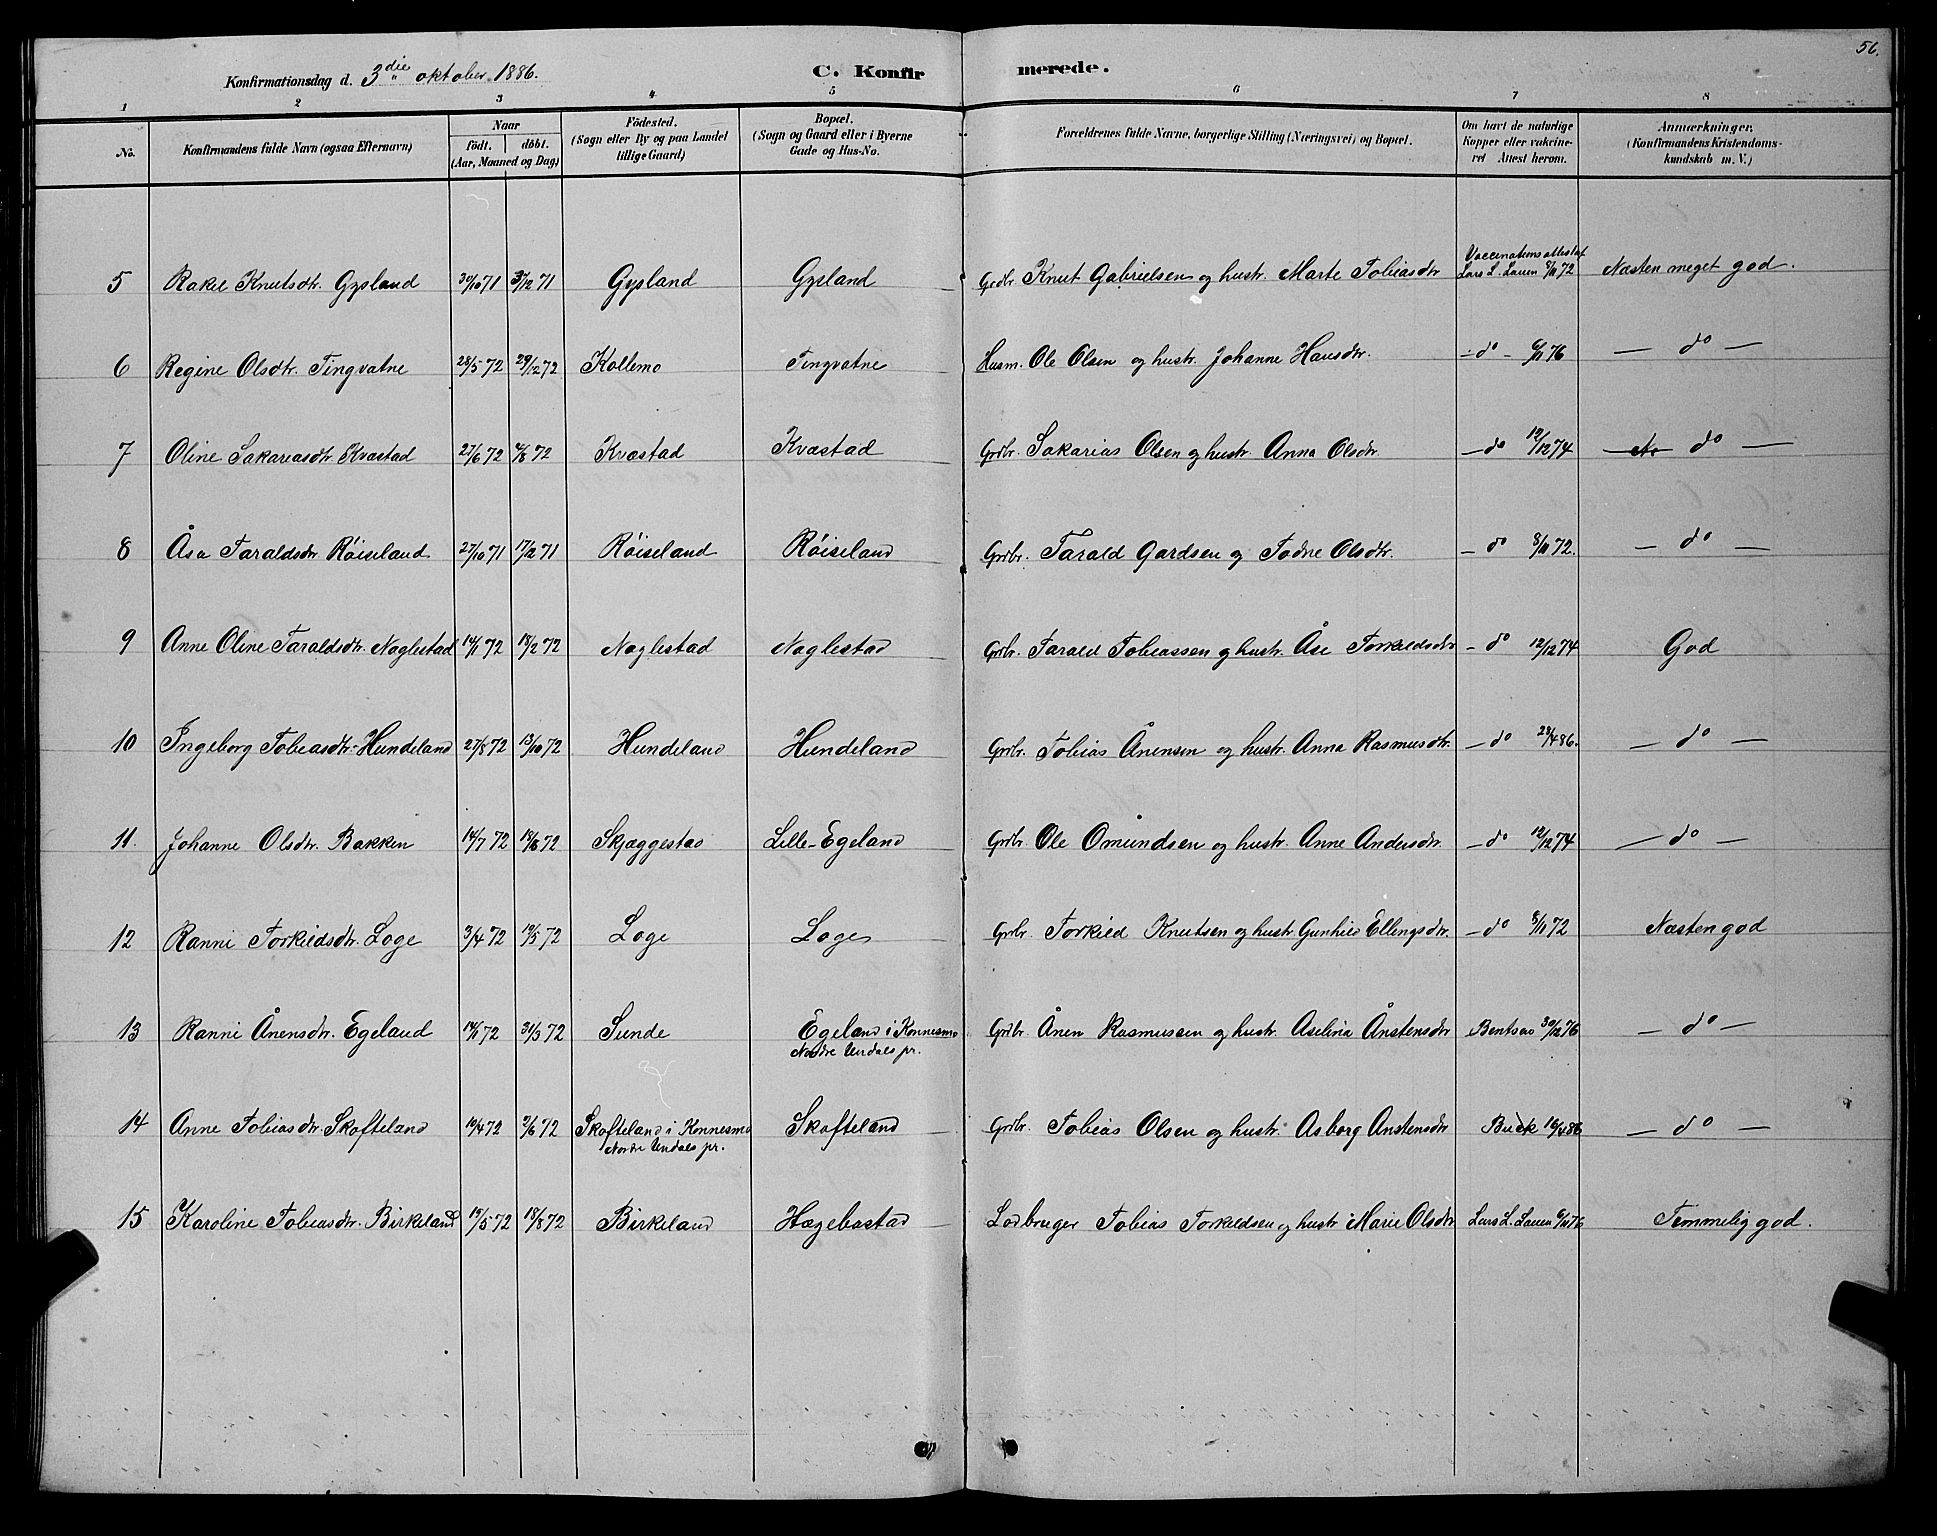 56.
Konfirmationsdag d. 3die oktober 1886. C. Konfirmerede.
1 2 3 4 5 6 7 8
No. Konfirmandens fulde Navn (ogsaa Efternavn) Naar födt. döbt. (Aar, Maaned og Dag) Födested. (Sogn eller By og paa Landet tillige Gaard) Bopæl. (Sogn og Gaard eller i Byerne Gade og Hus-No. Forældrenes fulde Navne, borgerlige Stilling (Næringsvei) og Bopæl. Om havt de naturlige Kopper eller vakcineret Attest herom. Anmærkninger. (Konfirmandens Kristendomskundskab m. V.)
5 Rakel Knutsdtr. Gysland 30/10 71 3/12 71 Gysland Gysland Grdbr. Knut Gabrielsen og hustr. Marte Tobiasdtr Vaccinationsattest af Lars L. Lauen 8/11 72 Næsten meget god.
6 Regine Olsdtr. Tingvatne 28/5 72 29/12 72 Kollemo Tingvatne Husm. Ole Olsen og hustr. Johanne Hansdtr. - do - 6/11 76 - do -
7 Oline Sakariasdtr. Kvastad 27/6 72 4/8 72 Kvastad Kvastad Grdbr. Sakarias Olsen og hustr. Anna Olsdtr. - do 12/12 74 - do -
8 Åsa Taraldsdtr Røiseland 27/10 71 17/12 71 Røiseland Røiseland Grdbr. Tarald Gardsen og Todne Olsdtr. - do 8/11 72. - do -
9 Anne Oline Taraldsdtr. Naglestad 14/1 72 18/2 72 Naglestad Naglestad Grdbr. Tarald Tobiassen og hustr. Åse Torkildsdtr - do 12/12 74 God
10 Ingeborg Tobiasdtr. Hundeland 27/8 72 13/10 72 Hundeland Hundeland Grdbr. Tobias Ånensen og hustr. Anna Rasmusdtr. - do 28/4 86. - do -
11. Johanne Olsdtr. Bakken 14/7 72 18/8 72 Skjæggestad Lille-Egeland Grdbr. Ole Omundsen og hustr. Anne Andersdtr. - do 12/12 74 - do -
12 Ranni Torkildsdtr. Loge 3/4 72 19/5 72 Loge Loge Grdbr. Torkild Knutsen og hustr Gunhild Ellingsdtr. - do 8/11 72 Næsten god
13 Ranni Ånensdtr. Egeland 14/1 72 31/3 72 Sunde Egeland i Konnesmo Nordre Undals pr. Grdbr. Ånen Rasmussen og hustr. Aselina Ånstensdtr Bentsen 30/12 76 - do -
14 Anne Tobiasdtr. Skofteland 10/4 72 9/6 72 Skofteland i Konnesmo Nordre Undals pr. Skofteland Grdbr. Tobias Olsen og hustr. Asborg Anstensdtr Buck 16/4 86 - do -
15 Karoline Tobiasdtr. Birkeland 19/5 72 18/8 72 Birkeland Hægebostad Lodbruger Tobias Torkildsen og hustr Marie Olsdtr Lars L. Lauen 6/11 76 Temmelig god.